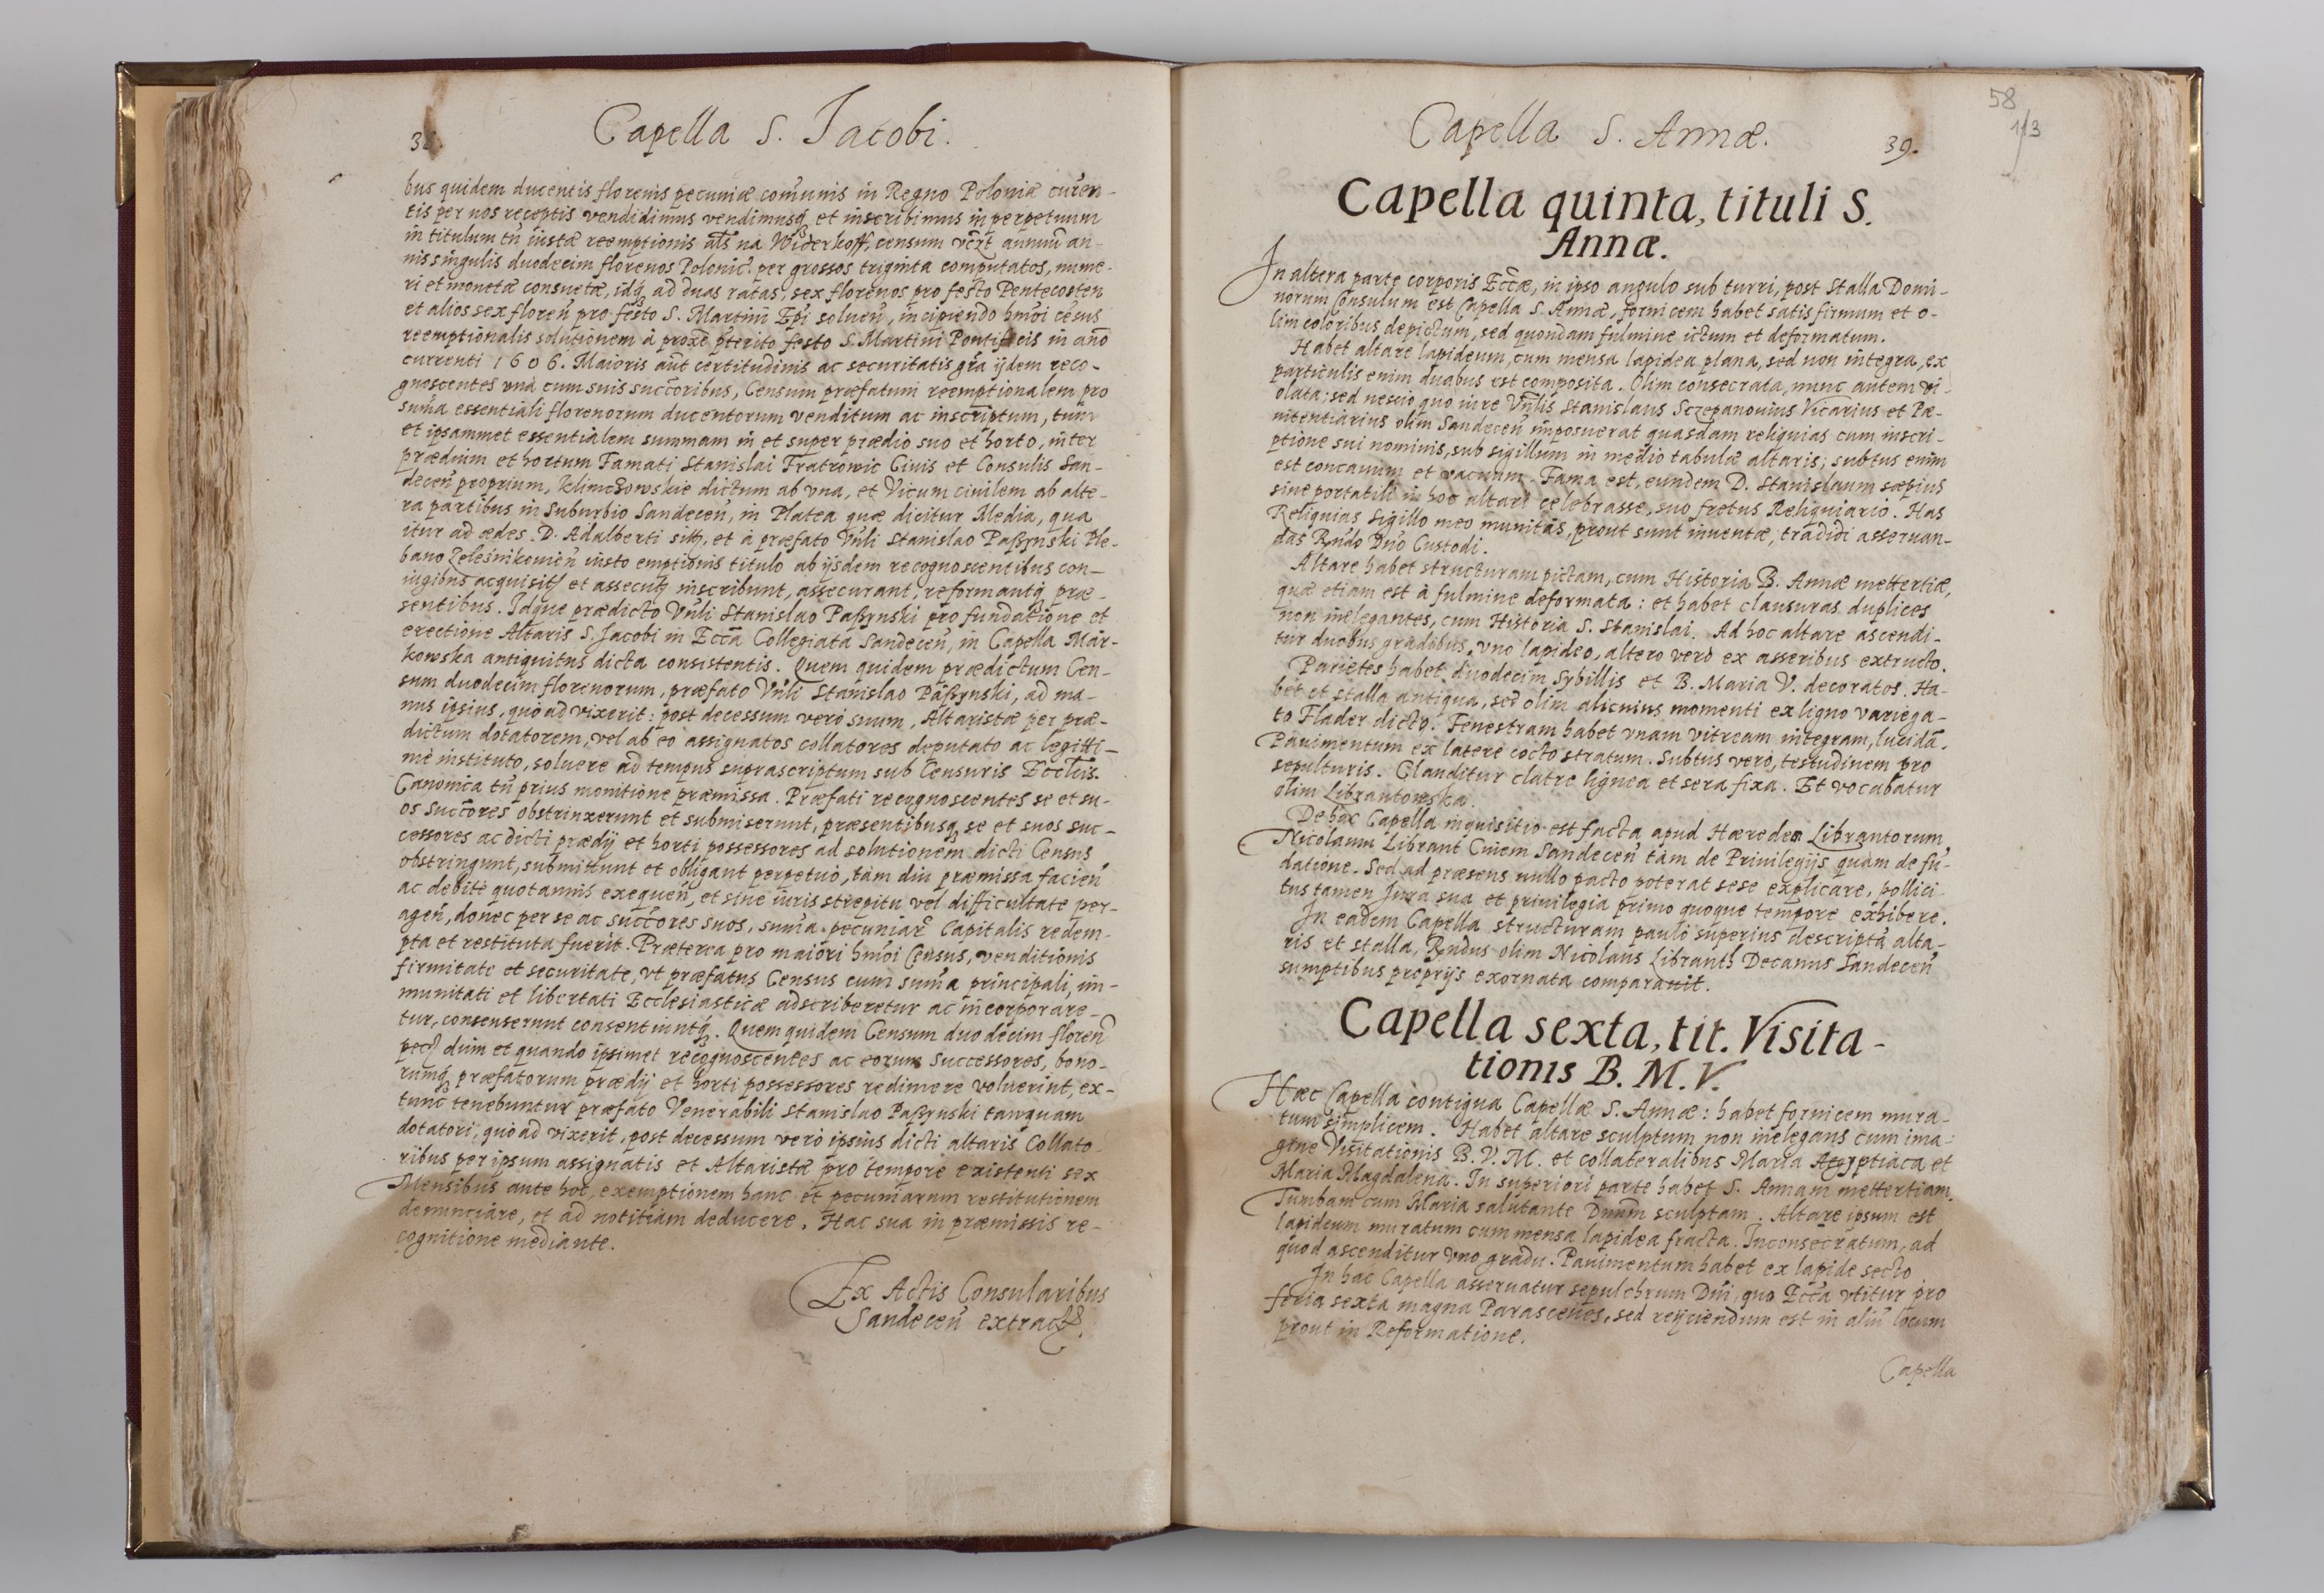 38.
Capella S. Iacobi.
bus quidem ducentis florenis pecuniæ com̃unis in Regno Poloniæ curen-
tis per nos receptis vendidimus vendimusq; et inscribimus in perpetuum
in titulum tñ iustæ reemptionis al̃s na Widerkoff, censum annuũ an-
nis singulis duodecim florenos Polonic. per grossos triginta computatos, nume-
ri et monetæ consuetæ, idq; ad duas ratas, sex florenos pro festo Pentecosten
et alios sex floreñ pro festo S. Martini Ep̃i solueñ, incipiendo hm̃oi cẽsus
reemptionalis solutionem à proxẽ p̃terito festo S. Martini Pontificis in año
currenti 1606. Maioris aũt certitudinis ac securitatis gr̃a ijdem reco-
gnoscentes vnà cum suis succ̃oribus, Censum præfatum reemptionalem pro
sum̃a essentiali florenorum ducentorum venditum ac inscriptum, tum
et ipsammet essentialem summam in et super prædio suo et horto, inter
prædium et hortum Famati Stanislai Fratrowic Ciuis et Consulis San-
deceñ proprium, Klimczowskie dictum ab vna, et Vicum ciuilem ab alte-
ra partibus in suburbio Sandeceñ, in Platea quæ dicitur Media, qua
itur ad ædes D. Adalberti sitis, et à præfato Vñli Stanislao Paßynski Ple-
bano Zelesnikouieñ iusto emptionis titulo ab ijsdem recognoscentibus con-
iugibus acquisitis et assecutis inscribunt, assecurant, reformantq; præ-
sentibus. Idque prædicto Vñli Stanislao Paßynski pro fundatione et
erectione Altaris S. Jacobi in Ecc̃a Collegiata Sandeceñ, in Capella Mar-
kowska antiquitus dicta consistentis. Quem quidem prædictum Cen-
sum duodecim florenorum, præfato Vñli Stanislao Paßynski, ad ma-
nus ipsius, quòad vixerit: post decessum verò suum, Altaristæ per præ-
dictum dotatorem, vel ab eo assignatos collatores deputato ac legitti-
mè instituto, soluere ad tempus suprascriptum sub Censuris Eccl̃cis.
Canonica tñ prius monitione præmissa. Præfati recognoscentes se et su-
os succ̃ores obstrinxerunt et submiserunt, præsentibusq; se et suos suc-
cessores ac dicti prædij et horti possessores ad solutionem dicti Census
obstringunt, submittunt et obligant perpetuò, tàm diu præmissa facieñ
ac debitè quotannis exequeñ, et sine iuris strepitu vel difficultate per-
ageñ, donec per se ac succ̃ores suos, sum̃a pecuniar̃ Capitalis redem-
pta et restituta fuerit. Præterea pro maiori hm̃oi Census, venditionis
firmitate et securitate, vt præfatus Census cum sum̃a principali, im-
munitati et libertati Ecclesiasticæ adscriberetur ac incorporare-
tur, consenserunt consentiuntq;. Quem quidem Censum duodecim floreñ
dum et quando ipsimet recognoscentes ac eorum successores, bono-
rumq; præfatorum prædij et horti possessores redimere voluerint, ex-
tunc tenebuntur præfato Venerabili Stanislao Paßynski tanquam
dotatori, quòad vixerit, post decessum verò ipsius dicti altaris Collato-
ribus per ipsum assignatis et Altaristæ pro tempore existenti sex
Mensibus ante hoc, exemptionem hanc et pecuniarum restitutionem
denunciare, et ad notitiam deducere. Hac sua in præmissis re-
cognitione mediante.
Ex Actis Consularibus
Sandeceñ extract̃.
58
113
Capella S. Annæ.
39.
Capella quinta, tituli S.
Annæ.
In altera parte corporis Ecc̃æ, in ipso angulo sub turri, post Stalla Domi-
norum Consulum est Capella S. Annæ, fornicem habet satis firmum et o-
lim coloribus depictum, sed quondam fulmine ictum et deformatum.
Habet altare lapideum, cum mensa lapidea plana, sed non integra, ex
particulis enim duabus est composita. Olim consecrata, nunc autem vi-
olata; sed nescio quo iure Vñlis Stanislaus Sczepanouius Vicarius et Pæ-
nitentiarius olim Sandeceñ imposuerat quasdam reliquias cum inscri-
ptione sui nominis, sub sigillum in medio tabulæ altaris; subtus enim
est concauum et vacuum. Fama est, eundem D. Stanislaum sæpius
sine portatili in hoc altari celebrasse, suo fretus Reliquiario. Has
Reliquias sigillo meo munitas, prout sunt inuentæ, tradidi asseruan-
das Rñdo Dño Custodi.
Altare habet structuram pictam, cum Historia B. Annæ mettertiæ,
quæ etiam est à fulmine deformata: et habet clausuras duplices
non inelegantes, cum Historia S. Stanislai. Ad hoc altare ascendi-
tur duobus gradibus, vno lapideo, altero verò ex asseribus extructo.
Parietes habet duodecim Sybillis et B. Maria V. decoratos. Ha-
bet et stalla antiqua, sed olim alicuius momenti ex ligno variega-
to Flader dicto. Fenestram habet vnam vitream integram, lucidã.
Pauimentum ex latere cocto stratum. Subtus verò, testudinem pro
sepulturis. Clauditur clatre lignea et sera fixa. Et vocabatur
olim Librantowska.
De hac Capella inquisitio est facta apud Hæredem Librantorum
Nicolaum Librant Ciuem Sandeceñ tàm de Priuilegijs quàm de fũ-
datione. Sed ad præsens nullo pacto poterat sese explicare, pollici-
tus tamen Iura sua et priuilegia primo quoque tempore exhibere.
In eadem Capella structuram paulò superius descriptã alta-
ris et stalla, Rñdus olim Nicolaus Librants Decanus Sandeceñ
sumptibus proprijs exornata comparauit.
Capella sexta, tit. Visita-
tionis B. M. V.
Hæc Capella contigua Capellæ S. Annæ: habet fornicem mura-
tum simplicem. Habet altare sculptum non inelegans cum ima-
gine Visitationis B. V. M. et collateralibus Maria Aegyptiaca et
Maria Magdalena. In superiori parte habet S. Annam mettertiam.
Tumbam cum Maria salutante Dnam sculptam. Altare ipsum est
lapideum muratum cum mensa lapidea fracta. Inconsecratum, ad
quod ascenditur vno gradu. Pauimentum habet ex lapide secto
In hac Capella asseruatur sepulchrum Dñi, quo Ecc̃a vtitur pro
feria sexta magna Parasceues, sed reijciendum est in aliũ locum
prout in Reformatione.
Capella